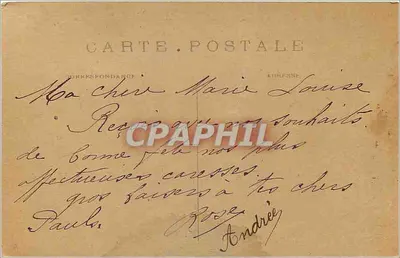 CARTE POSTALE
CORRESPONDANCE
ADRESSE
Ma chère Marie Louise
Reçois avec nos souhaits
de bonne fête nos plus
affectueuses caresses.
gros baisers à tes chers
Pauls.
Rose
Andrée
CPAPHIL